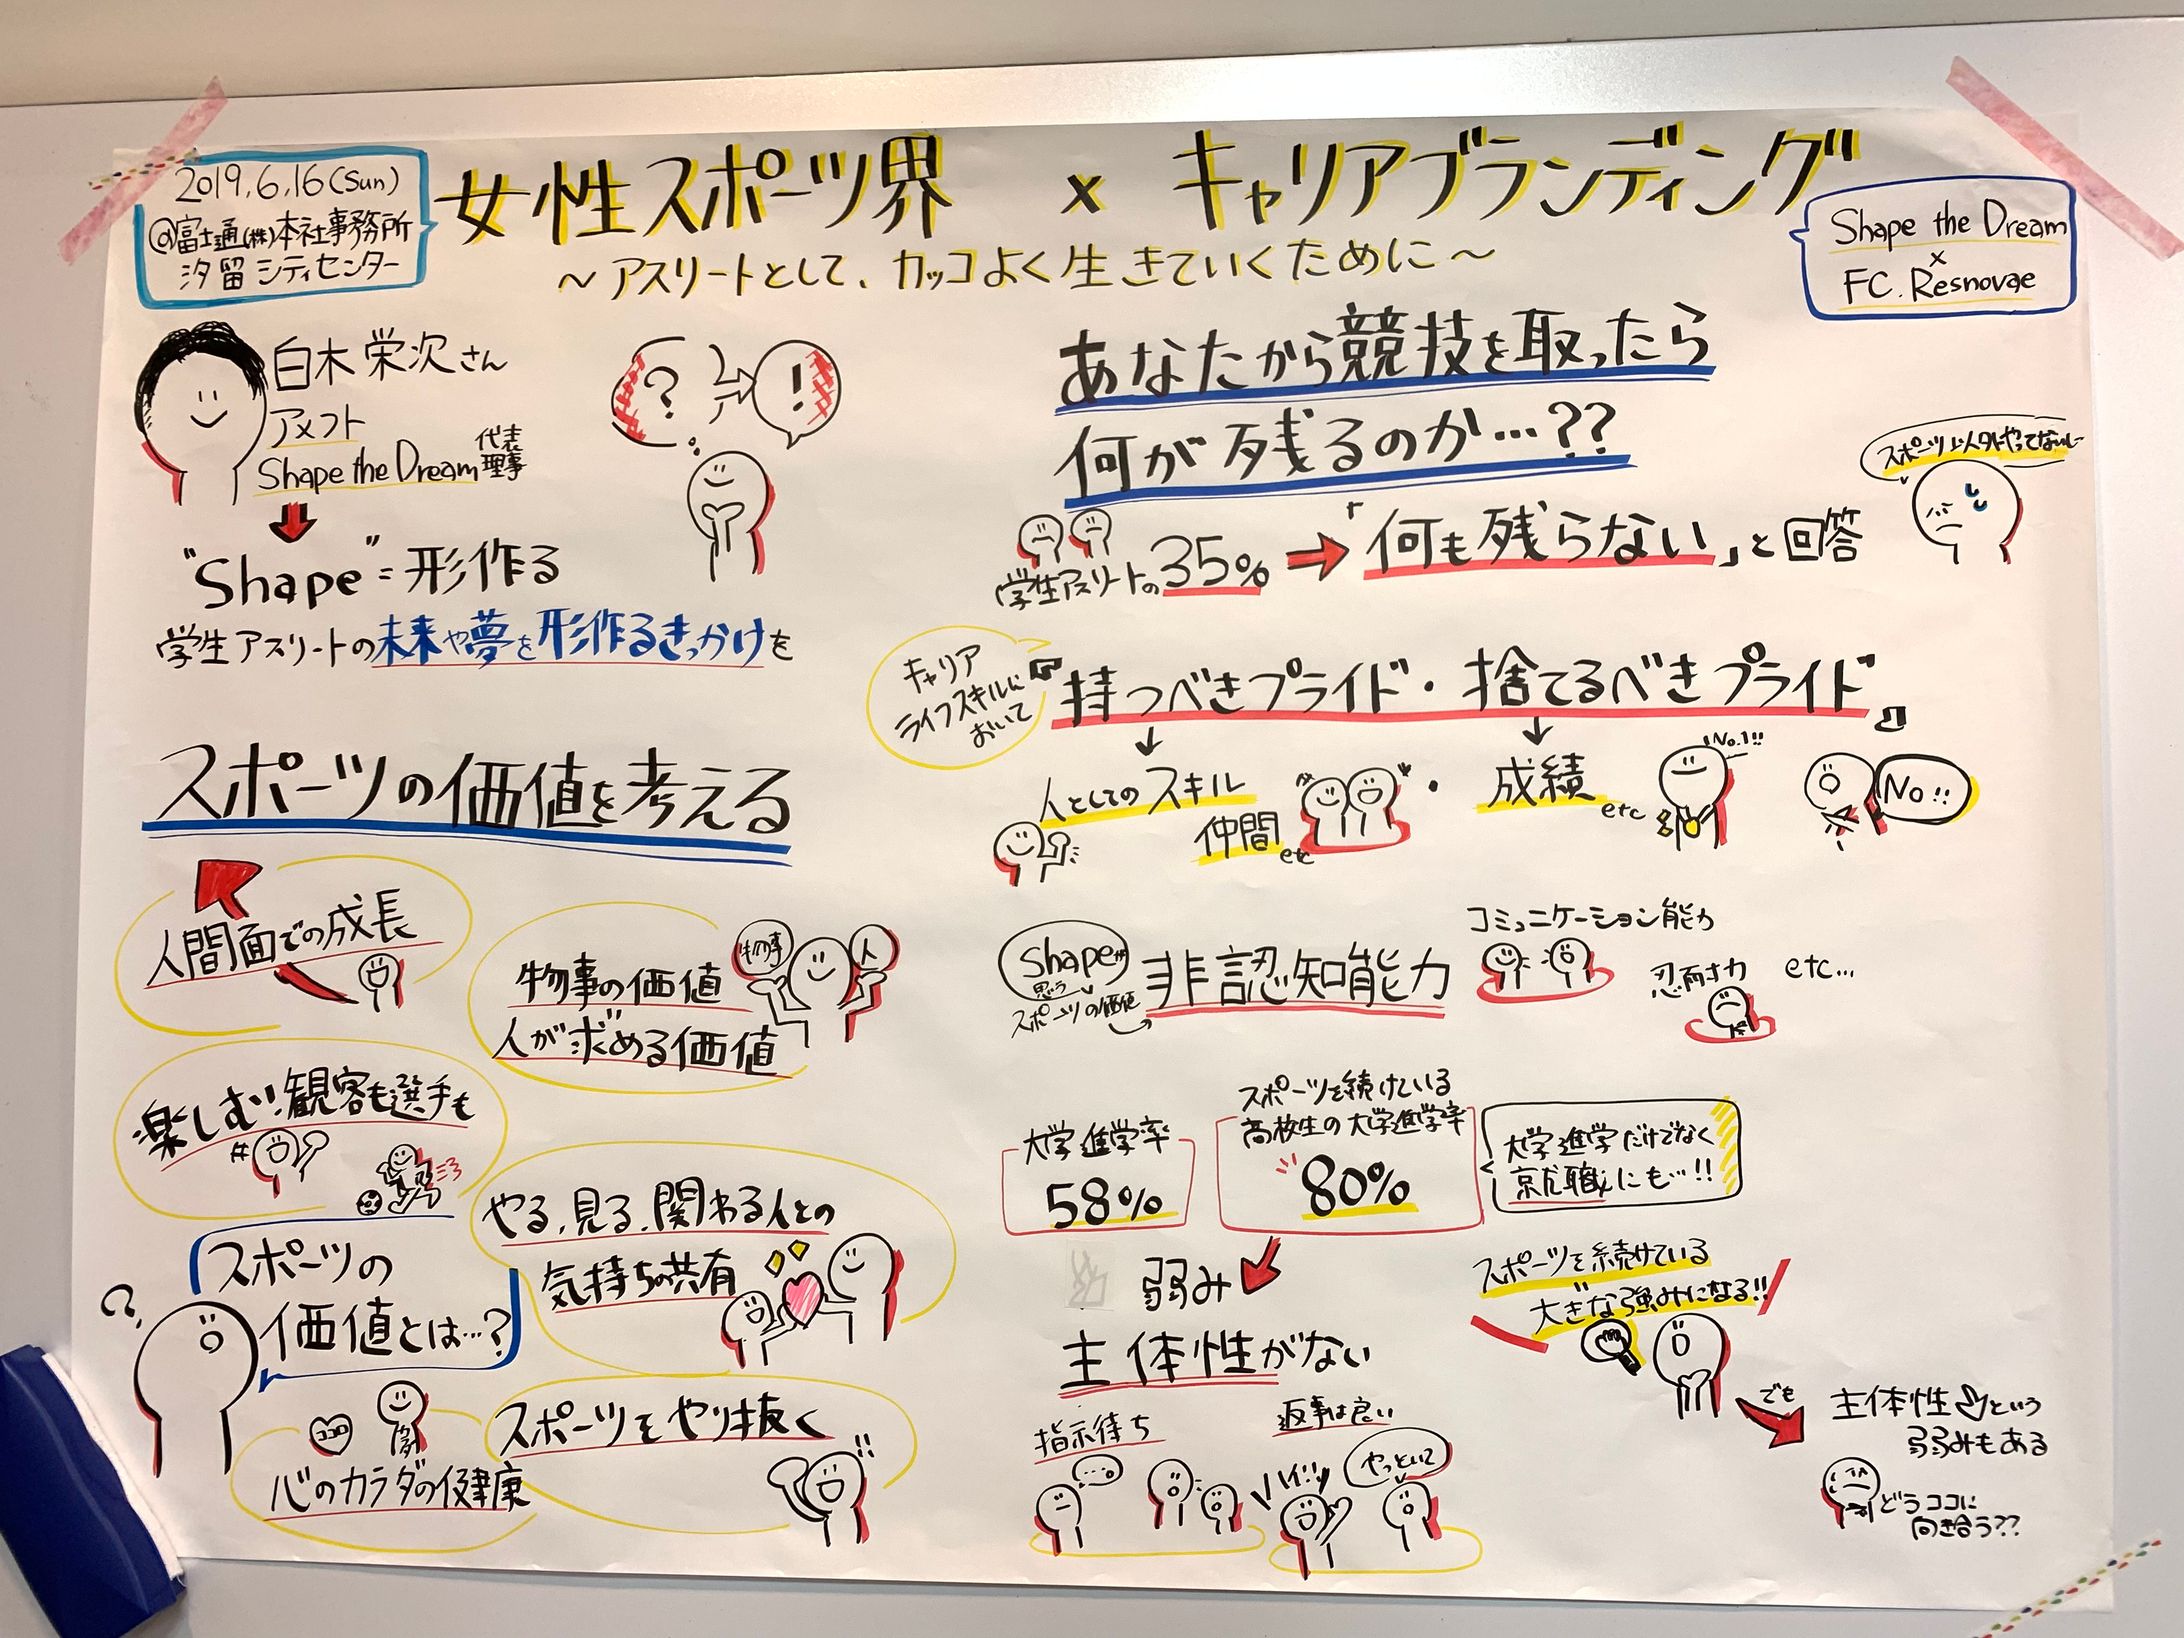 2019.6.16(Sun)
@富士通(株)本社事務所
汐留シティセンター
女性スポーツ界 × キャリアブランディング
～アスリートとして、カッコよく生きていくために～
Shape the Dream
×
FC. Resnovae
白木栄次さん
アメフト
Shape the Dream 代表
理事
"Shape"=形作る
学生アスリートの未来や夢を形作るきっかけを
?
!
スポーツの価値を考える
人間面での成長
物事の価値
人が求める価値
物事
人
楽しむ!観客も選手も
やる,見る,関わる人との
気持ちの共有
スポーツの
価値とは…?
?
ココロ
心のカラダの健康
スポーツをやり抜く
!!
あなたから競技を取ったら
何が残るのか…??
スポーツ以外やってないし…
学生アスリートの35%
「何も残らない」と回答
キャリア
ライフスキルに
おいて
『持つべきプライド・捨てるべきプライド』
人としてのスキル
仲間 etc
・
成績 etc
No.1!!
No!!
Shapeが
思う
スポーツの価値
非認知能力
コミュニケーション能力
忍耐力
etc…
大学進学率
58%
スポーツを続けている
高校生の大学進学率
80%
大学進学だけでなく
就職にも…!!
弱み
主体性がない
指示待ち
…。
返事は良い
ハイ!!
やっといて
スポーツを続けている
大きな強みになる!!
でも
主体性という
弱みもある
どうココに
向き合う??